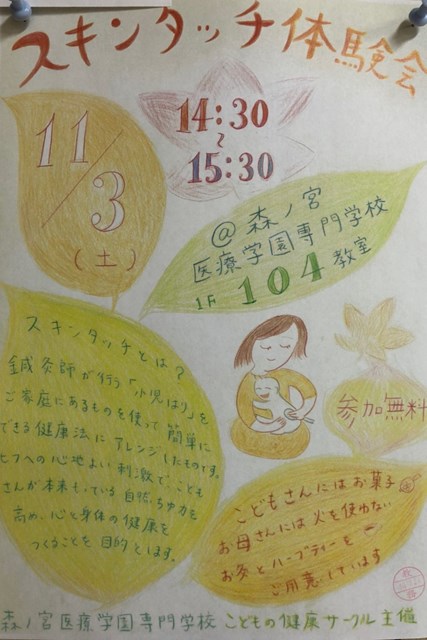 スキンタッチ体験会
11/3
(土)
14:30
~
15:30
@森ノ宮
医療学園専門学校
1F 104 教室
スキンタッチとは?
鍼灸師が行う「小児はり」を
ご家庭にあるものを使って簡単に
できる健康法にアレンジしたものです。
ヒフへの心地よい刺激で、こども
さんが本来もっている自然ちゆ力を
高め、心と身体の健康を
つくることを目的とします。
参加無料
こどもさんにはお菓子
お母さんには火を使わない
お灸とハーブティーを
ご用意しています
森ノ宮医療学園専門学校 こどもの健康サークル主催